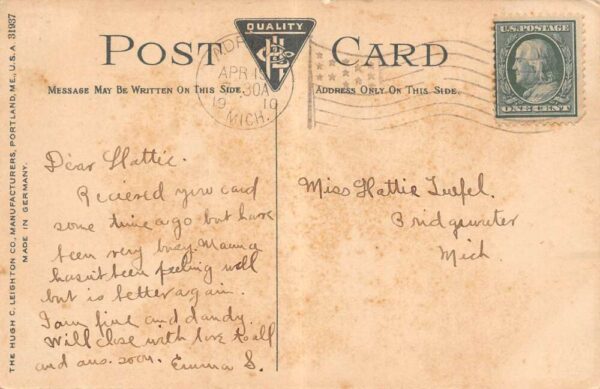 QUALITY
POST CARD
MESSAGE MAY BE WRITTEN ON THIS SIDE.
ADDRESS ONLY ON THIS SIDE.
APR
30A
19 10
MICH.
U.S. POSTAGE
ONE CENT
THE HUGH C. LEIGHTON CO., MANUFACTURERS, PORTLAND, ME., U.S.A. 31937
MADE IN GERMANY.
Dear Hattie.
Recieved your card
some time ago but have
been very busy. Mama
hasn't been feeling well
but is better again.
I am fine and dandy.
Will close with love to all
and ans. soon. Emma S.
Miss Hattie Teufel.
Bridgewater
Mich.